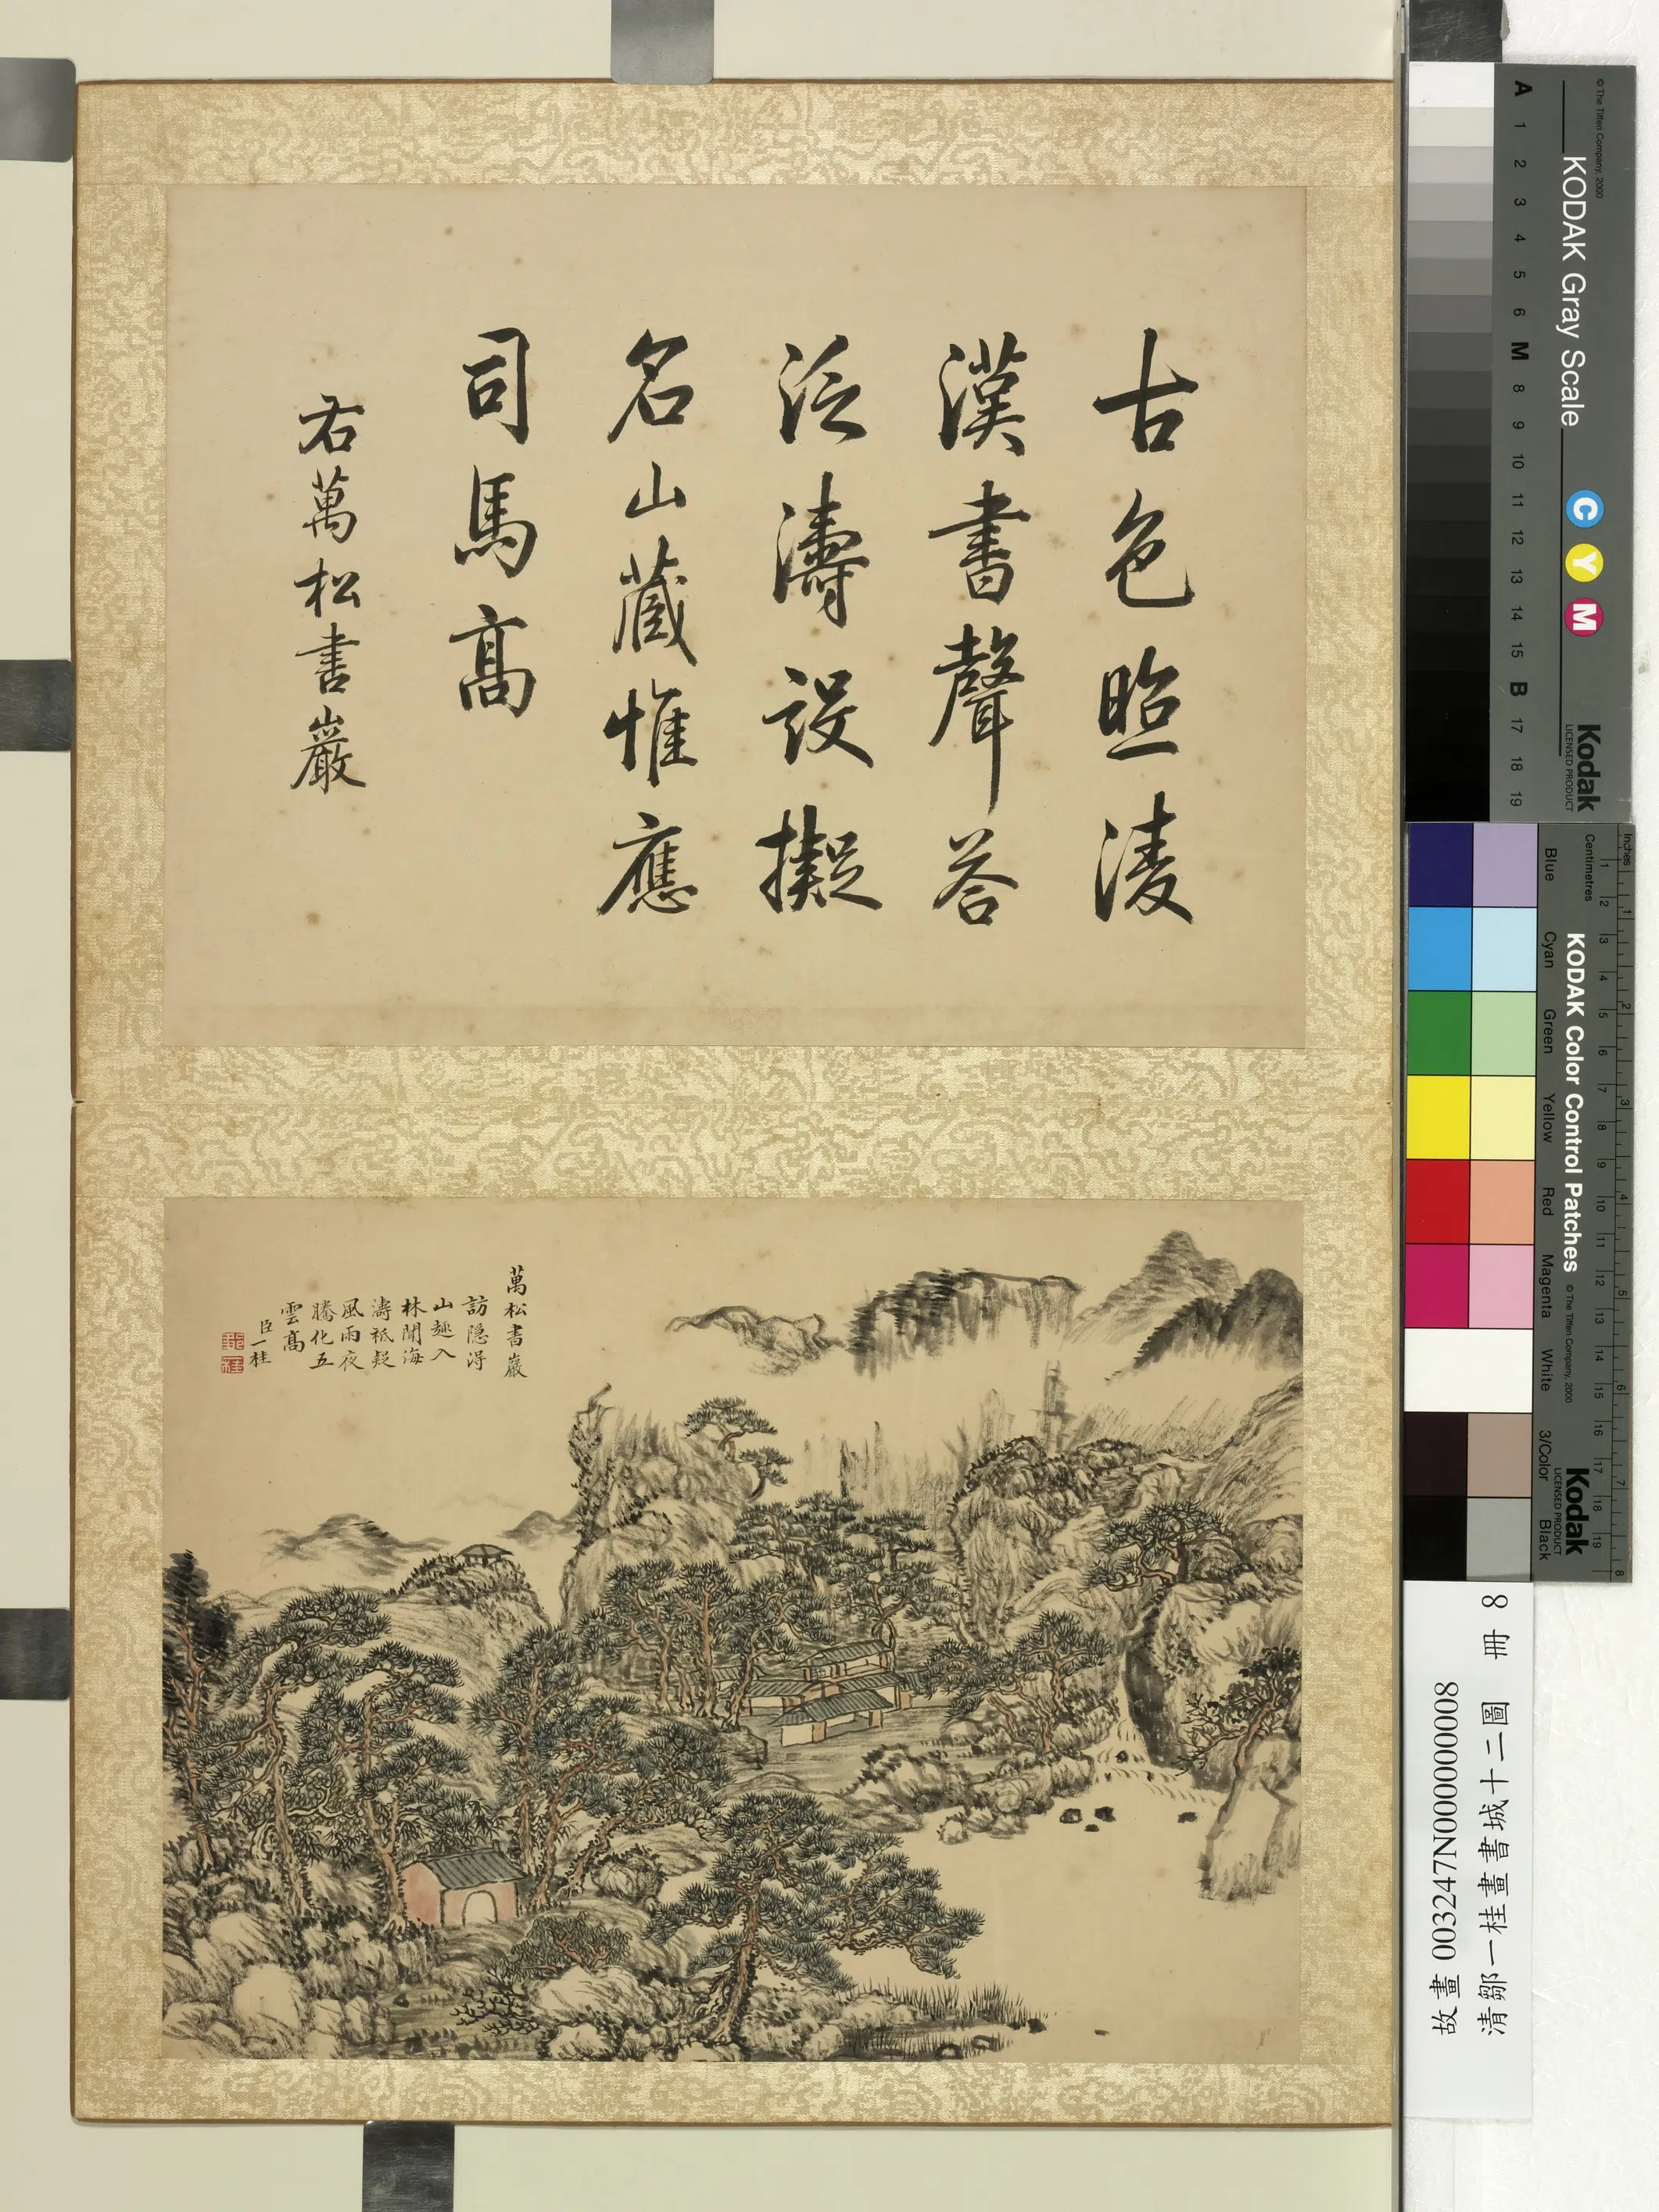 古色照淩
漢書聲答
泛濤設擬
名山藏惟應
司馬高
右萬松書巖
萬松書巖
訪隱得
山趣入
林聞海
濤祇疑
風雨夜
騰化五
雲高
臣一桂
© The Tiffen Company, 2000
KODAK Gray Scale
C Y M
Kodak
LICENSED PRODUCT
A 1 2 3 4 5 6 M 8 9 10 11 12 13 14 15 B 17 18 19
Inches 1 2 3 4 5 6 7 8
Centimetres 1 2 3 4 5 6 7 8 9 10 11 12 13 14 15 16 17 18 19
KODAK Color Control Patches
© The Tiffen Company, 2000
Kodak
LICENSED PRODUCT
Blue Cyan Green Yellow Red Magenta White 3/Color Black
故畫 003247N000000008
清鄒一桂畫書城十二圖 冊 8